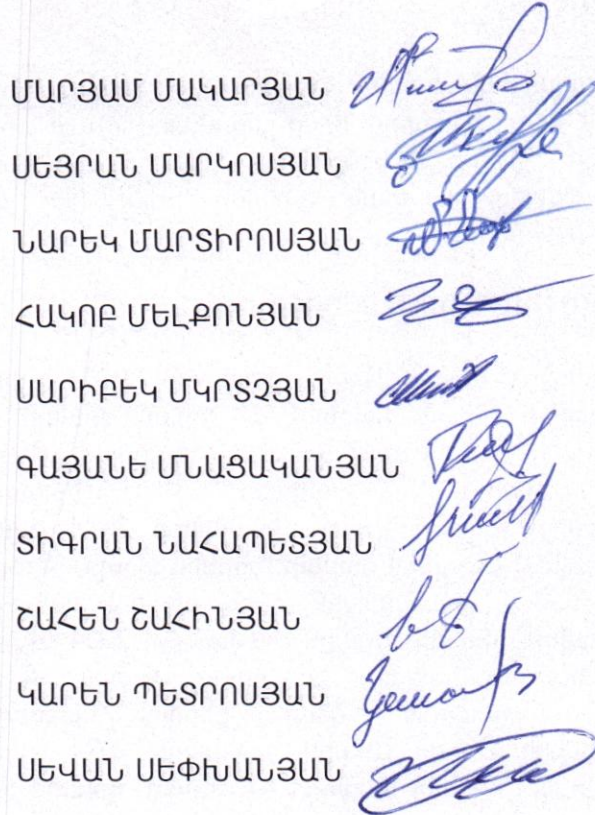 ՄԱՐՅԱՄ ՄԱԿԱՐՅԱՆ
ՍԵՅՐԱՆ ՄԱՐԿՈՍՅԱՆ
ՆԱՐԵԿ ՄԱՐՏԻՐՈՍՅԱՆ
ՀԱԿՈԲ ՄԵԼՔՈՆՅԱՆ
ՍԱՐԻԲԵԿ ՄԿՐՏՉՅԱՆ
ԳԱՅԱՆԵ ՄՆԱՑԱԿԱՆՅԱՆ
ՏԻԳՐԱՆ ՆԱՀԱՊԵՏՅԱՆ
ՇԱՀԵՆ ՇԱՀԻՆՅԱՆ
ԿԱՐԵՆ ՊԵՏՐՈՍՅԱՆ
ՍԵՎԱՆ ՍԵՓԽԱՆՅԱՆ